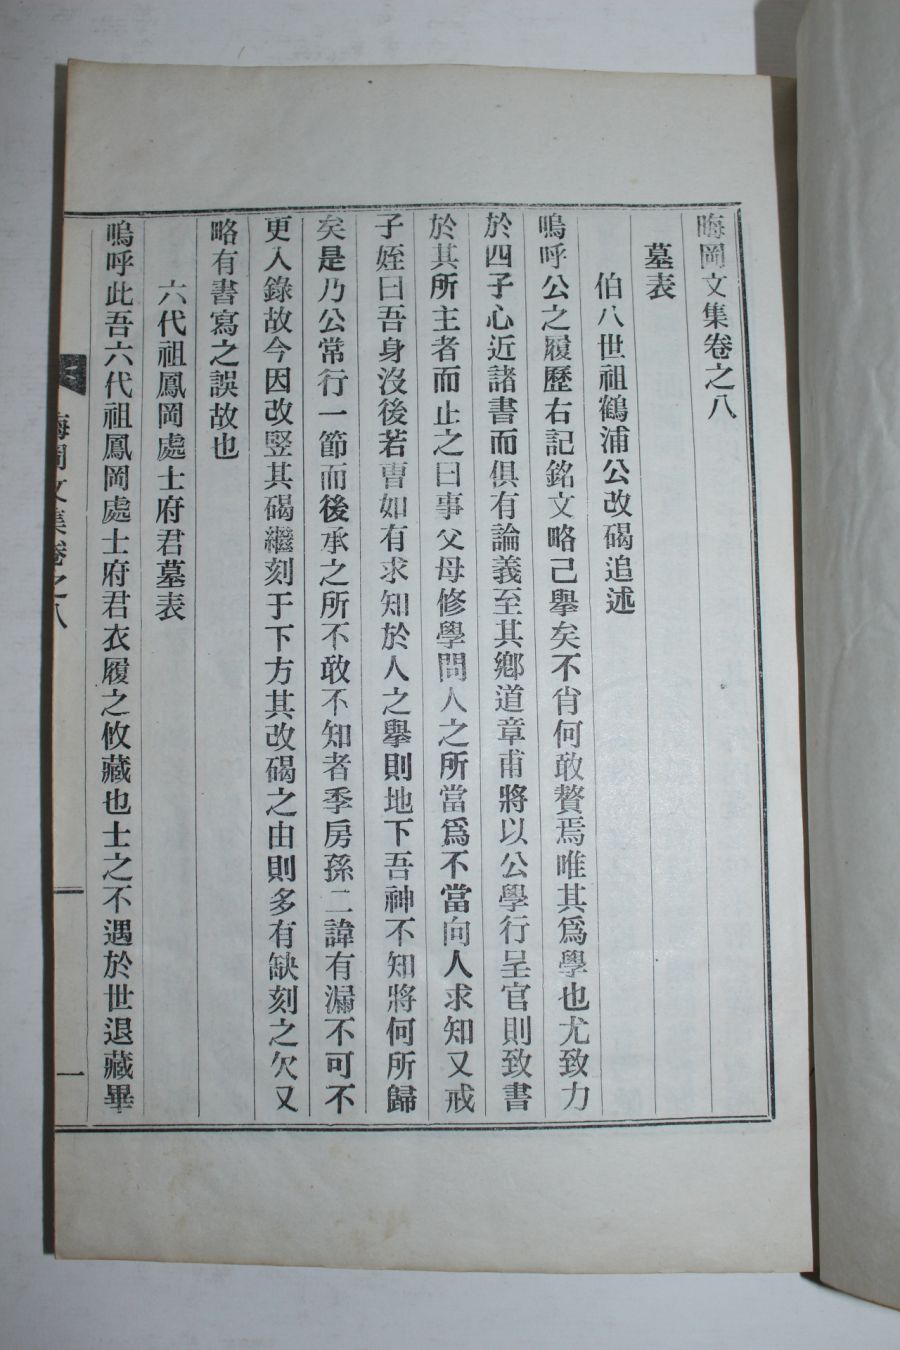 晦岡文集卷之八
墓表
伯八世祖鶴浦公改碣追述
嗚呼公之履歷右記銘文略己擧矣不肯何敢贅焉唯其爲學也尤致力
於四子心近諸書而俱有論義至其鄕道章甫將以公學行呈官則致書
於其所主者而止之曰事父母修學問人之所當爲不當向人求知又戒
子姪曰吾身沒後若曺如有求知於人之擧則地下吾神不知將何所歸
矣是乃公常行一節而後承之所不敢不知者季房孫二諱有漏不可不
更入錄故今因改竪其碣繼刻于下方其改碣之由則多有缺刻之欠又
略有書寫之誤故也
六代祖鳳岡處士府君墓表
嗚呼此吾六代祖鳳岡處士府君衣履之攸藏也士之不遇於世退藏畢
晦岡文集卷之八
一